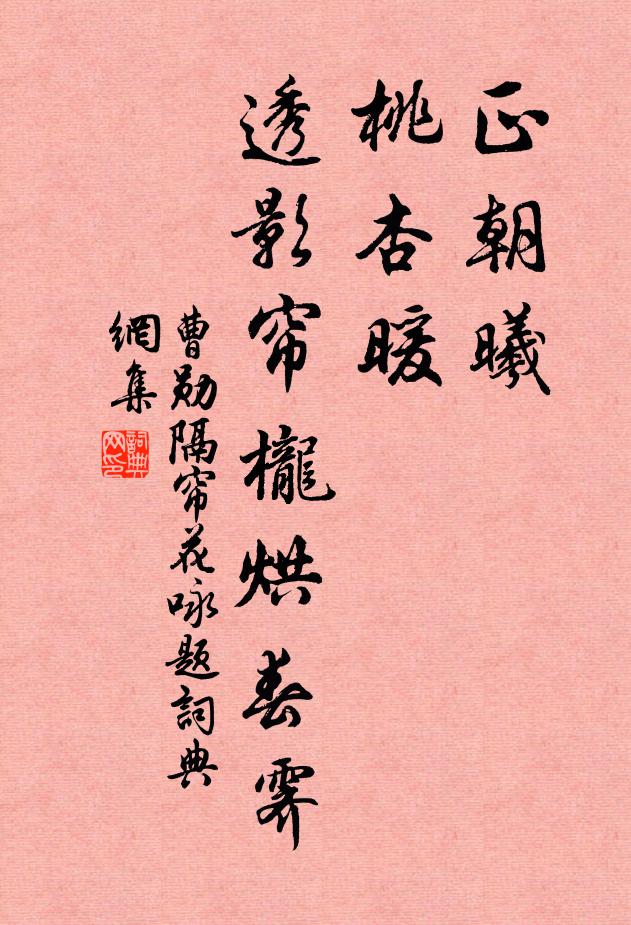 正朝曦
桃杏暖
透影帘櫳烘春霁
曹勋隔帘花咏题詞典
網集
詞典
网印